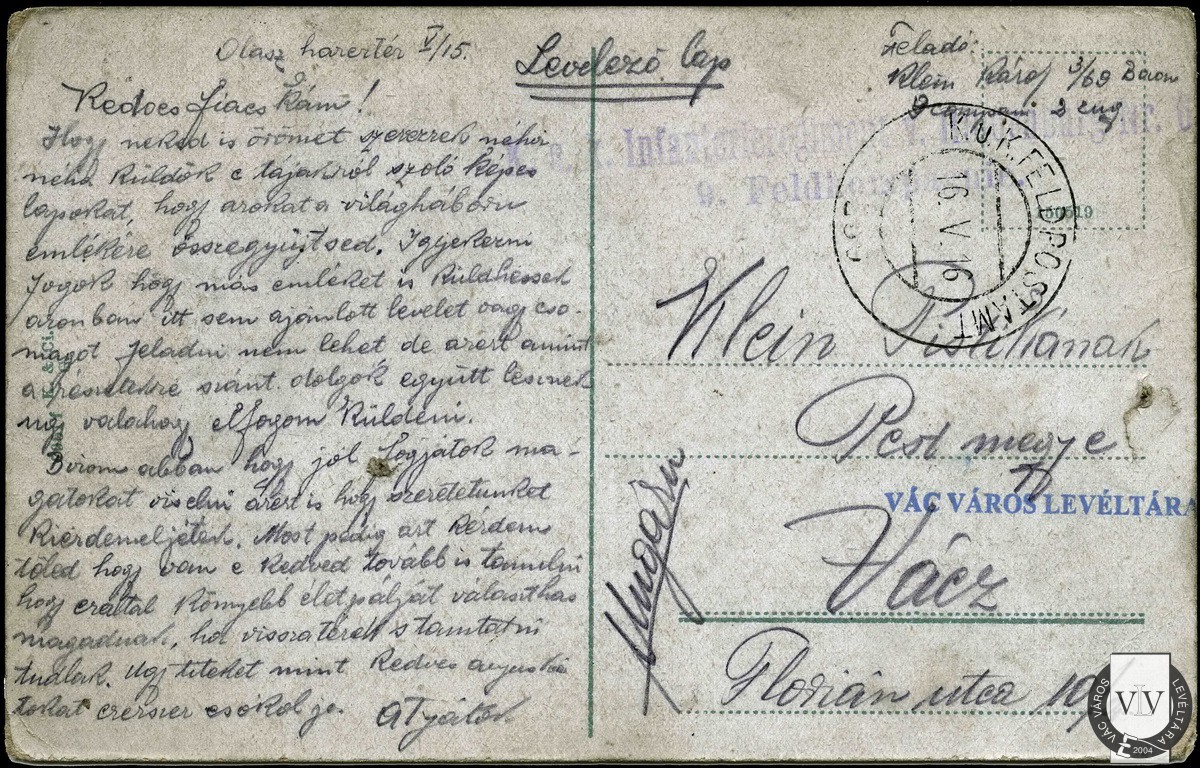 Olasz harertér V/15.
Levelező lap
Feladó:
Klein Károj 3/69 Baon
2 zug
Kedves fiacs Kám!
Hogy neked is örömet szerezzek néhai
néha küldök e tájakról szoló képes
lapokat, hogy azokat a világháboru
emlékére összegyüjtsed. Igyekezni
fogok hogy más emléket is küldhessek
azonban itt sem ajánlott levelet vagy cso-
magot feladni nem lehet de azért amint
a részetekre szánt dolgok együtt lesznek
majd valahogy elfogom küldeni.
Bizom abban hogy jól fogjátok ma-
gatokat viselni azért is hogy szeretetünket
kiérdemeljétek. Most pedig azt kérdem
tőled hogy van e kedved tovább is tanulni
hogy ezáltal könyebb életpályát választhas
magadnak, ha visszatérek s taníttatni
tudlak. Ugy titeket mint kedves anyuská
tokat ezerszer csókolja Atyátok
K. u. k. Infanterieregiment
9. Feldkompagnie
K.U.K. FELDPOSTAMT
16 V 16
150519
Klein Pistikának
Pest megye
VÁC VÁROS LEVÉLTÁRA
Vácz
Florián utca 19
Ungarn
VÁC VÁROS LEVÉLTÁRA
VLV
2004